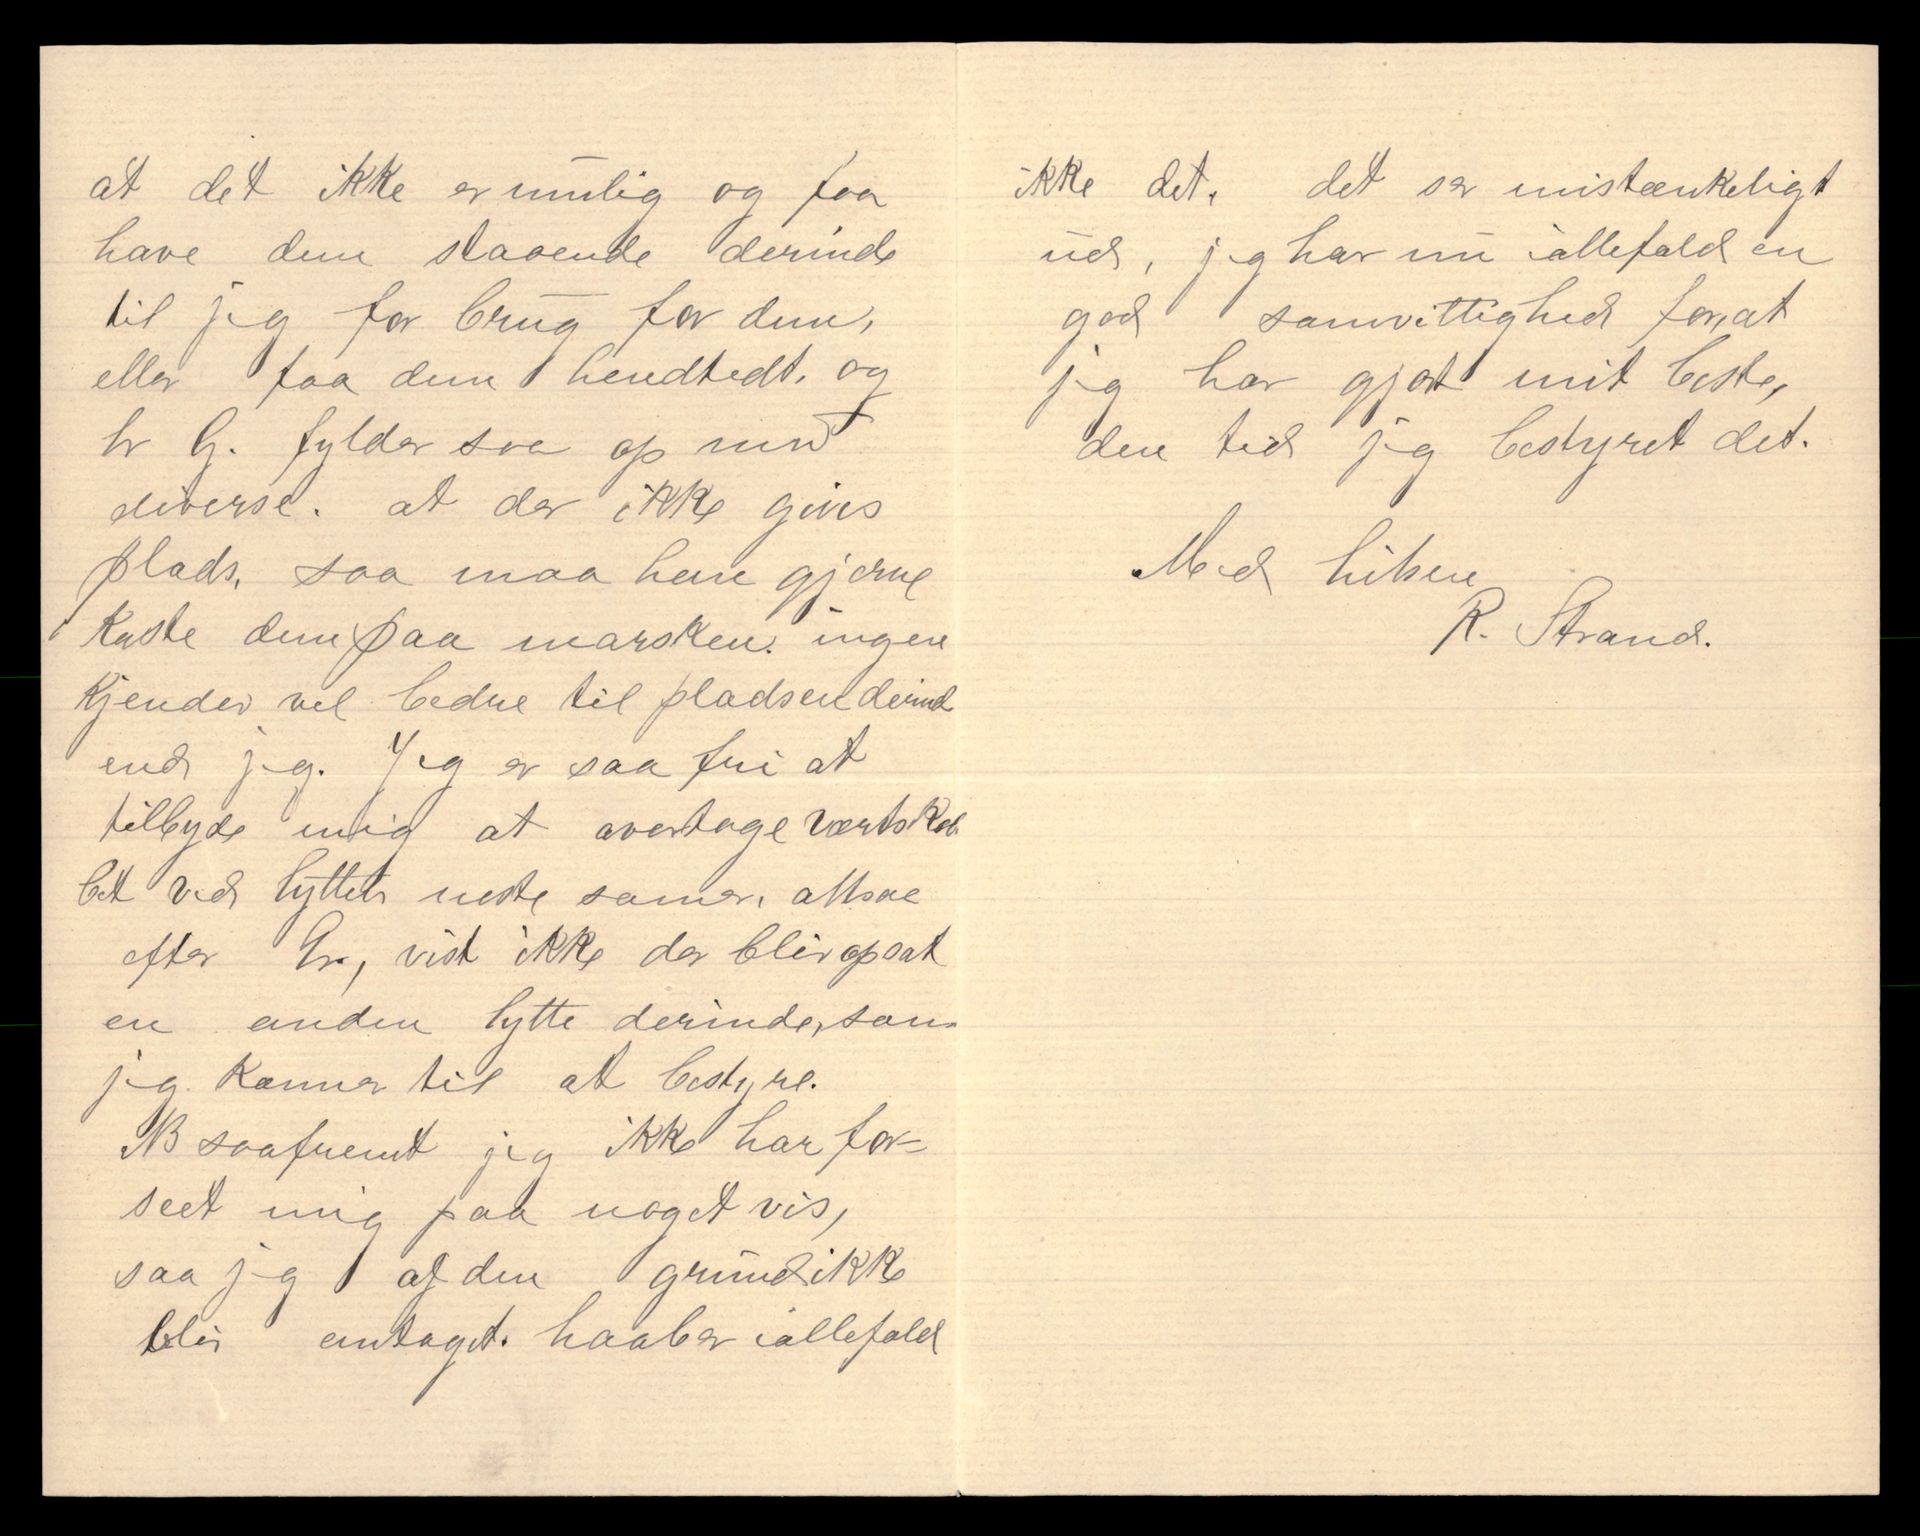 at det ikke er mulig og faa
have dem staaende derinde
til jeg for brug for dem,
eller faa dem hendtedt. og
hr G. fylder saa op med
diverse. at der ikke gives
plads, saa maa han gjerne
kaste dem paa marsken. ingen
kjender vel bedre til pladsen derind
end jeg. Jeg er saa fri at
tilbyde mig at overtage værtskab
bet ved hytten neste somer, altsaa
efter Gr., vist ikke der blir opsat
en anden hytte derinde, som
jeg kommer til at bestyre.
NB saafremt jeg ikke har for=
seet mig paa noget vis,
saa jeg af den grund ikke
blir antaget. haaber iallefald
ikke det, det ser mistænkeligt
ud, jeg har nu iallefald en
god samvittighed for, at
jeg har gjort mit beste,
den tid jeg bestyret det.
Med hilsen
R. Strand.